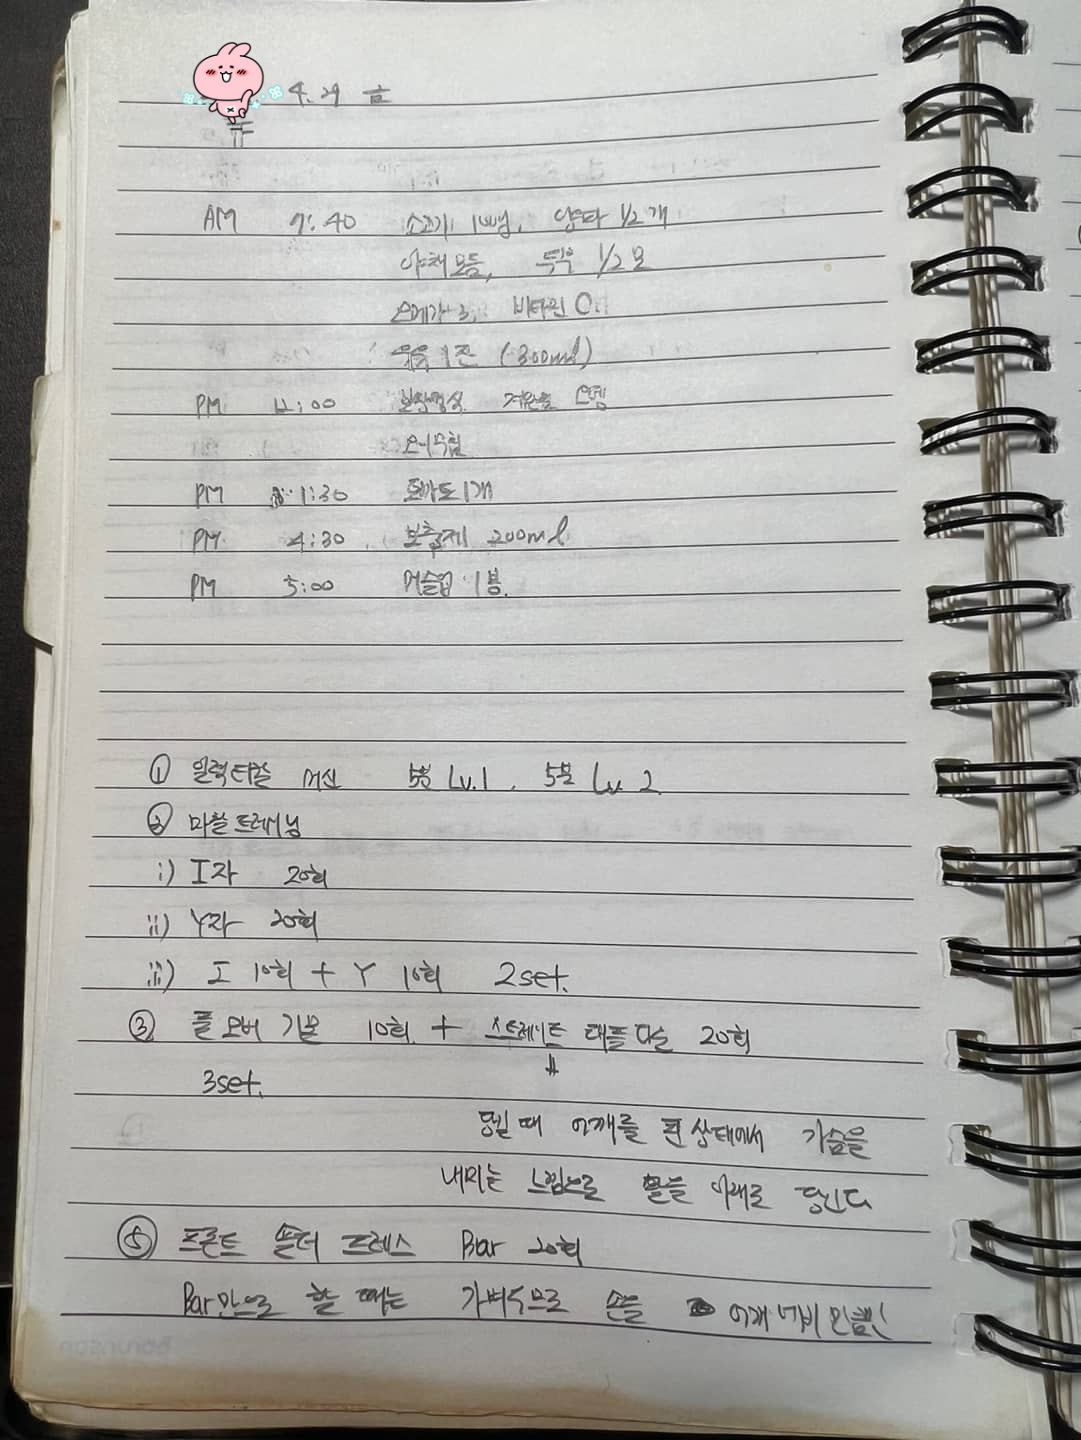 4. 29 금
AM 7:40 소고기 100g, 양파 1/2개
야채모듬, 두부 1/2모
오메가3, 비타민
우유 1잔 (300ml)
PM 12:00
오이무침
PM 1:30 토마토 1개
PM 4:30 보충제 200ml
PM 5:00 머슬업 1봉.
① 일렉티컬 머신 5분 Lv.1, 5분 Lv 2
② 마찰트레이닝
i) I자 20회
ii) Y자 20회
iii) I 10회 + Y 10회 2set.
③ 풀오버 기본 10회 + 스트레이트 풀 다운 20회
3set.
당길 때 어깨를 편 상태에서 가슴을
내미는 느낌으로 팔을 아래로 당긴다
⑤ 프론트 숄더 프레스 Bar 20회
Bar만으로 할 때는 가벼우므로 손을 어깨 너비만큼!